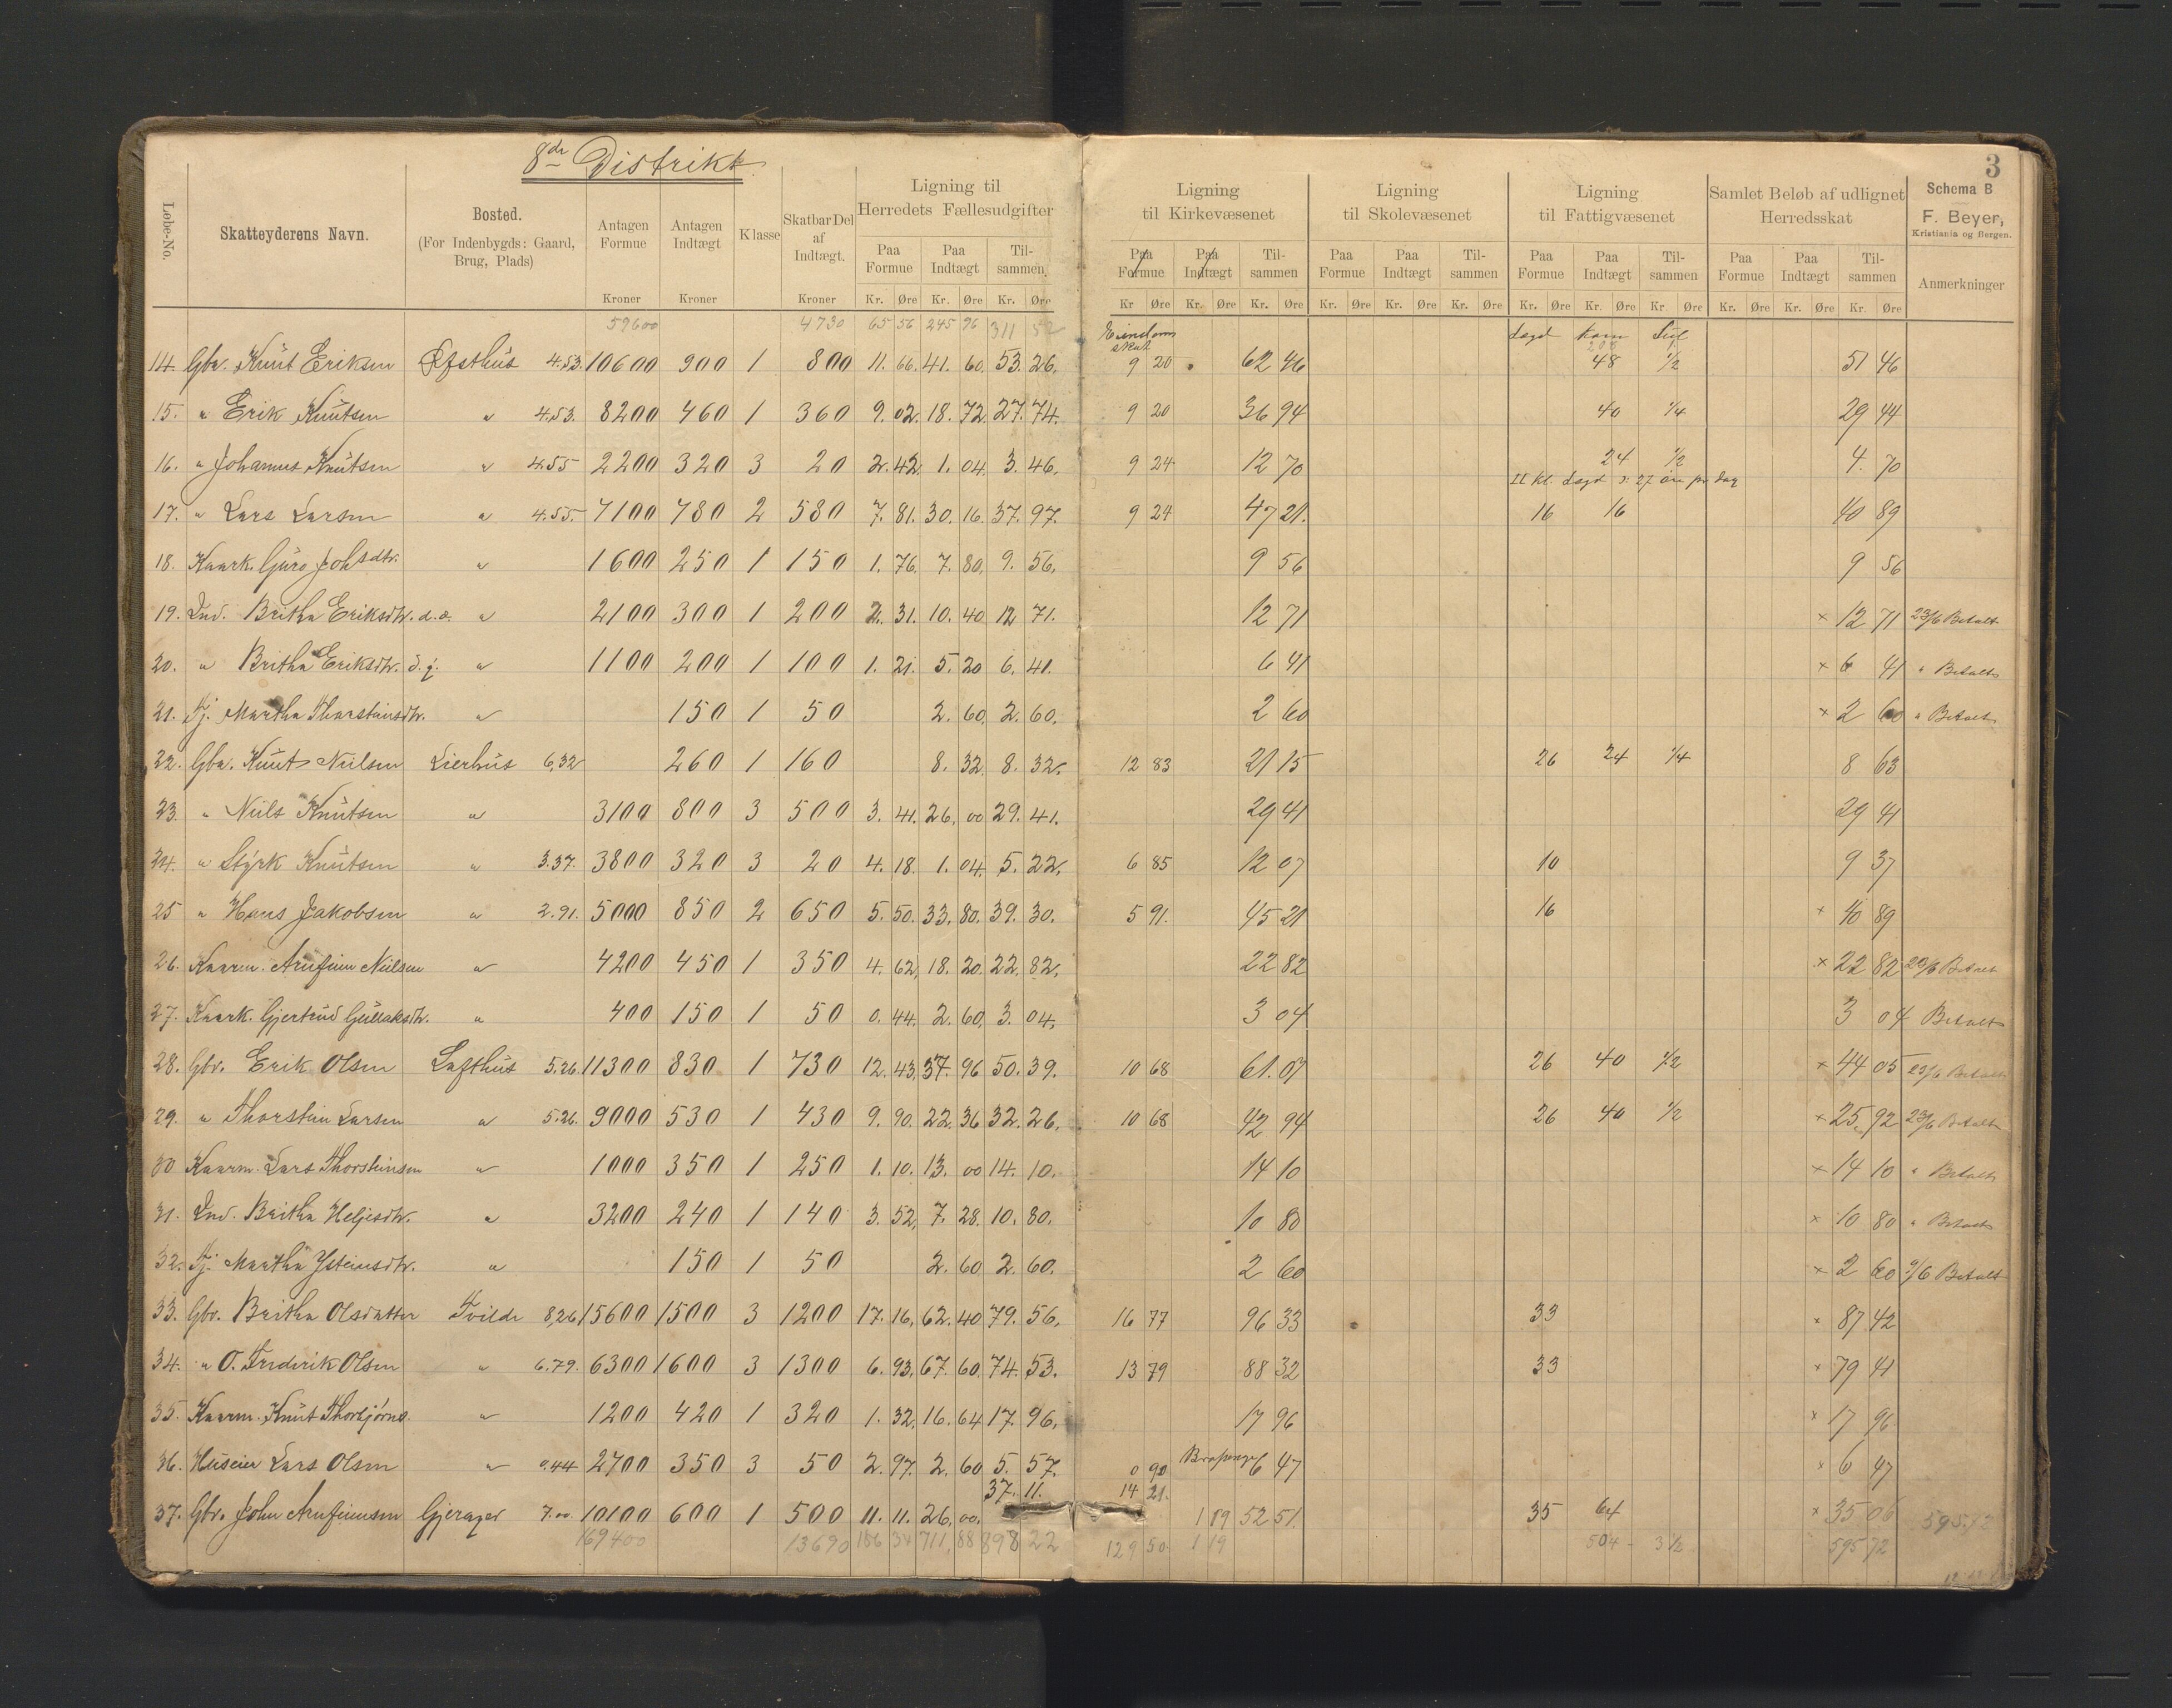 8de Distrikt.
3
Løbe-No. Skatteyderens Navn. Bosted. (For Indenbygds: Gaard, Brug, Plads) Antagen Formue Antagen Indtægt Klasse Skatbar Del af Indtægt. Ligning til Herredets Fællesudgifter Ligning til Kirkevæsenet Ligning til Skolevæsenet Ligning til Fattigvæsenet Samlet Beløb af udlignet Herredsskat Schema B
F. Beyer,
Kristiania og Bergen.
Paa Formue Paa Indtægt Til-sammen. Paa Formue Paa Indtægt Til-sammen Paa Formue Paa Indtægt Til-sammen Paa Formue Paa Indtægt Til-sammen Paa Formue Paa Indtægt Til-sammen Anmerkninger
Kroner Kroner Kroner Kr. Øre Kr. Øre Kr. Øre Kr Øre Kr. Øre Kr. Øre Kr. Øre Kr. Øre Kr. Øre Kr. Øre Kr. Øre Kr Øre Kr. Øre Kr. Øre Kr. Øre
59600 4730 65 56 245 96 311 52 Eiendoms skat Lægd korn
14. Gbr. Knut Eriksen Øfsthus 4.53. 10600 900 1 800 11. 66. 41. 60. 53. 26. 9 20 62 46 48 1/2 51 46
15. " Erik Knutsen " 4.53. 8200 460 1 360 9. 02. 18. 72. 27. 74. 9 20 36 94 40 1/4 29 44
16. " Johannes Knutsen " 4.55 2200 320 3 20 2. 42. 1. 04. 3. 46. 9 24 12 70 24 1/2 4. 70
II kl. Lægd 27 øre pr dag
17. " Lars Larsen " 4.55. 7100 780 2 580 7. 81. 30. 16. 37. 97. 9 24 47 21. 16 16 40 89
18. Kaark. Guro Johsdtr. " 1600 250 1 150 1. 76. 7. 80. 9. 56. 9 56 9 56
19. Ind. Britha Eriksdtr. d.æ. " 2100 300 1 200 2. 31. 10. 40 12 71. 12 71 × 12 71 23/6 Betalt
20. " Britha Eriksdtr. d.y. " 1100 200 1 100 1. 21. 5. 20 6. 41. 6 41 × 6 41 " Betalt
21. Tj. Martha Tharsteinsdtr. " 150 1 50 2. 60. 2. 60. 2 60 × 2 60 " Betalt
22. Gbr. Knut Neilsen Lierhus 6.32 260 1 160 8. 32. 8. 32. 12 83 21 15 26 24 1/4 8 63
23. " Neils Knutsen " 3100 800 3 500 3. 41. 26. 00 29. 41. 29 41 29 41
24. " Styrk Knutsen " 3.37. 3800 320 3 20 4. 18. 1. 04. 5. 22. 6 85 12 07 10 9 37
25 " Hans Jakobsen " 2.91. 5000 850 2 650 5. 50. 33. 80. 39. 30. 5 91. 45 21 16 × 40 89
26. Kaarm. Arnfinn Neilsen " 4200 450 1 350 4. 62. 18. 20. 22. 82. 22 82 × 22 82 23/6 Betalt
27. Kaark. Gjertrud Gullaksdtr. " 400 150 1 50 0. 44. 2. 60. 3. 04. 3 04 3 04 Betalt
28. Gbr. Erik Olsen Lofthus 5.26. 11300 830 1 730 12. 43. 37. 96 50. 39. 10 68 61. 07 26 40 1/2 × 44 05 23/6 Betalt
29. " Thorstein Larsen " 5.26. 9000 530 1 430 9. 90. 22. 36 32. 26. 10 68 42 94 26 40 1/2 × 25 92 23/6 Betalt
30 Kaarm. Lars Thorsteinsen " 1000 350 1 250 1. 10. 13. 00 14. 10. 14 10 × 14 10 " Betalt
31. Ind. Britha Heljesdtr. " 3200 240 1 140 3. 52. 7. 28. 10. 80. 10 80 × 10 80 " Betalt
32. Tj. Martha Ysteinsdtr. " 150 1 50 2. 60 2. 60. 2 60 × 2 60 /6 Betalt
33. Gbr. Britha Olsdatter Tvilde 8.26 15600 1500 3 1200 17. 16. 62. 40 79. 56. 16 77 96 33 33 × 87 42
34. " O. Fredrik Olsen " 6.79. 6300 1600 3 1300 6. 93. 67. 60. 74. 53. 13 79 88 32 33 × 79 41
35. Kaarm. Knut Thorbjørns. " 1200 420 1 320 1. 32. 16. 64 17. 96. 17 96 × 17 96
36. Huseier Lars Olsen " 0.44 2700 350 3 50 2. 97. 2. 60 5. 57. 0 90 6 47 × 6 47
37. Gbr. John Arnfinnsen Gjerager 7.00. 10100 600 1 500 11. 11. 26. 00. 37. 11. 14 21. 1 19 52 51. 35 64 × 35 06 595.72
169400 13690 186 34 711 88 898 22 129 50 1 19 504 3 1/2 595 72